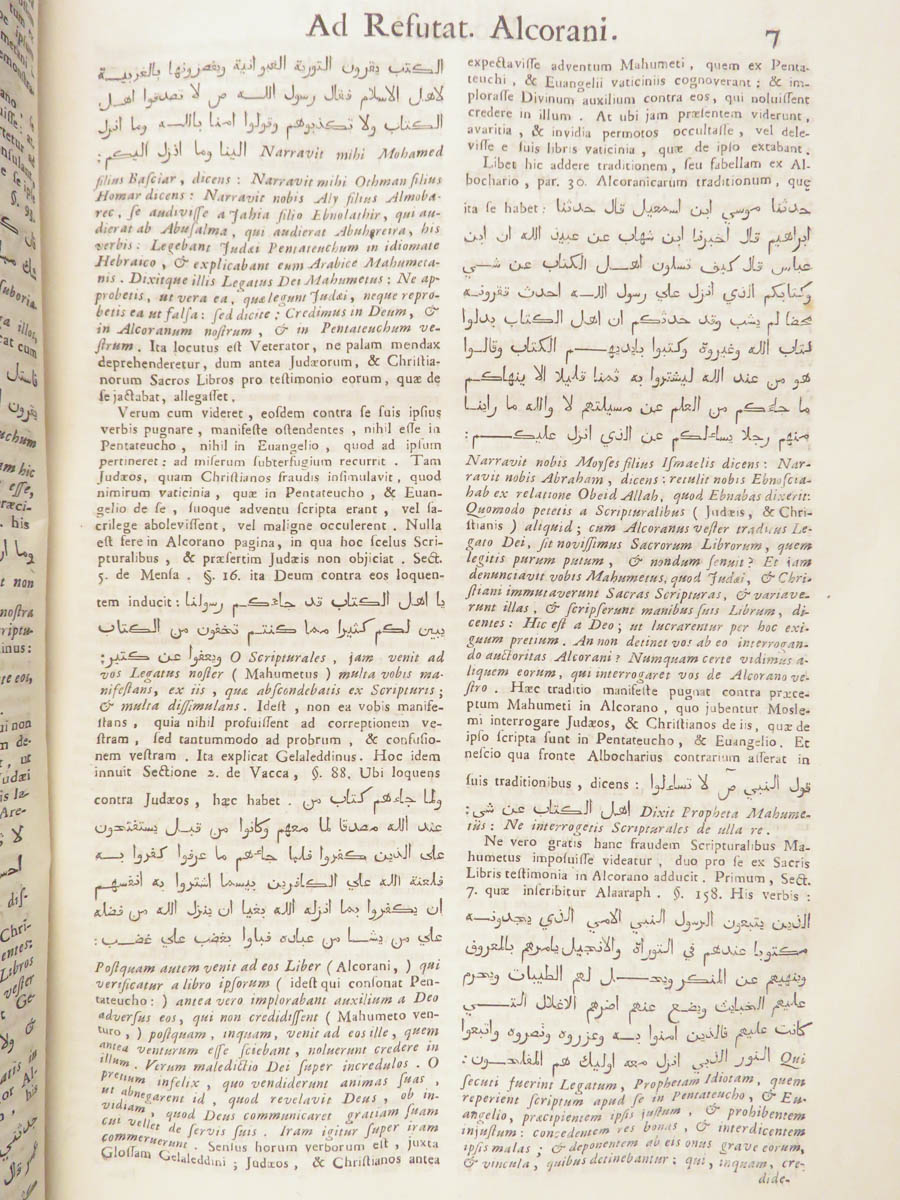 Ad Refutat. Alcorani.
7
الكتب يقرون التورية العبرانية ويفصرونها بالعربية
لاهل الاسلام فقال رسول الله ص لا تصدقوا اهل
الكتاب ولا تكذبوهم وقولوا امنا بالله وما انزل
الينا وما انزل اليكم: Narravit mihi Mohamed
filius Basciar, dicens: Narravit mihi Othman filius
Homar dicens: Narravit nobis Aly filius Almoba-
rec, se audivisse a Jahia filio Ebnolathir, qui au-
dierat ab Abusalma, qui audierat Abuhoreira, his
verbis: Legebant Judæi Pentateuchum in idiomate
Hebraico, & explicabant eum Arabice Mahumeta-
nis. Dixitque illis Legatus Dei Mahumetus: Ne ap-
probetis, ut vera ea, quæ legunt Judæi, neque repro-
betis ea ut falsa: sed dicite; Credimus in Deum, &
in Alcoranum nostrum, & in Pentateuchum ve-
strum. Ita locutus est Veterator, ne palam mendax
deprehenderetur, dum antea Judæorum, & Christia-
norum Sacros Libros pro testimonio eorum, quæ de
se jactabat, allegasset.
Verum cum videret, eosdem contra se suis ipsius
verbis pugnare, manifeste ostendentes, nihil esse in
Pentateucho, nihil in Euangelio, quod ad ipsum
pertineret: ad miserum subterfugium recurrit. Tam
Judæos, quam Christianos fraudis insimulavit, quod
nimirum vaticinia, quæ in Pentateucho, & Euan-
gelio de se, suoque adventu scripta erant, vel sa-
crilege abolevissent, vel maligne occulerent. Nulla
est fere in Alcorano pagina, in qua hoc scelus Scri-
pturalibus, & præsertim Judæis non objiciat. Sect.
5. de Mensa. §. 16. ita Deum contra eos loquen-
tem inducit: يا اهل الكتاب قد جاءكم رسولنا
يبين لكم كثيرا مما كنتم تخفون من الكتاب
ويعفوا عن كثير: O Scripturales, jam venit ad
vos Legatus noster (Mahumetus) multa vobis ma-
nifestans, ex iis, quæ abscondebatis ex Scripturis;
& multa dissimulans. Idest, non ea vobis manife-
stans, quia nihil profuissent ad correptionem ve-
stram, sed tantummodo ad probrum, & confusio-
nem vestram. Ita explicat Gelaleddinus. Hoc idem
innuit Sectione 2. de Vacca, §. 88. Ubi loquens
contra Judæos, hæc habet. ولما جاءهم كتاب من
عند الله مصدقا لما معهم وكانوا من قبل يستفتحون
على الذين كفروا فلما جاءهم ما عرفوا كفروا به
فلعنة الله علي الكافرين بيسما اشتروا به انفسهم
ان يكفروا بما انزله الله بغيا ان ينزل الله من فضله
علي من يشا من عباده فباوا بغضب علي غضب:
Postquam autem venit ad eos Liber (Alcorani,) qui
verificatur a libro ipsorum (idest qui consonat Pen-
tateucho:) antea vero implorabant auxilium a Deo
adversus eos, qui non credidissent (Mahumeto ven-
turo,) postquam, inquam, venit ad eos ille, quem
antea venturum esse sciebant, noluerunt credere in
illum. Verum maledictio Dei super incredulos. O
pretium infelix, quo vendiderunt animas suas,
ut abnegarent id, quod revelavit Deus, ob in-
vidiam, quod Deus communicaret gratiam suam
cui vellet de servis suis. Iram igitur super iram
commeruerunt. Sensus horum verborum est, juxta
Glossam Gelaleddini; Judæos, & Christianos antea
expectavisse adventum Mahumeti, quem ex Penta-
teuchi, & Euangelii vaticiniis cognoverant; & im-
plorasse Divinum auxilium contra eos, qui noluissent
credere in illum. At ubi jam præsentem viderunt,
avaritia, & invidia permotos occultasse, vel dele-
visse e suis libris vaticinia, quæ de ipso extabant.
Libet hic addere traditionem, seu fabellam ex Al-
bochario, par. 30. Alcoranicarum traditionum, quę
ita se habet: حدثنا موسي ابن اسمعيل قال حدثنا
ابراهيم قال اخبرنا ابن شهاب عن عبيد الله ان ابن
عباس قال كيف تسلون اهل الكتاب عن شي
وكتابكم الذي انزل علي رسول الله احدث تقرونه
محضا لم يشب وقد حدثكم ان اهل الكتاب بدلوا
كتاب الله وغيروه وكتبوا بايديهم الكتاب وقالوا
هو من عند الله ليشتروا به ثمنا قليلا الا ينهاكم
ما جاءكم من العلم عن مسيلتهم لا والله ما راينا
منهم رجلا يساءلكم عن الذي انزل عليكم:
Narravit nobis Moyses filius Ismaelis dicens: Nar-
ravit nobis Abraham, dicens: retulit nobis Ebnoscia-
hab ex relatione Obeid Allah, quod Ebnabas dixerit:
Quomodo petetis a Scripturalibus (Judæis, & Chri-
stianis) aliquid; cum Alcoranus vester traditus Le-
gato Dei, sit novissimus Sacrorum Librorum, quem
legitis purum putum, & nondum senuit? Et jam
denunciavit vobis Mahumetus, quod Judæi, & Chri-
stiani immutaverunt Sacras Scripturas, & variave-
runt illas, & scripserunt manibus suis Librum, di-
centes: Hic est a Deo; ut lucrarentur per hoc exi-
guum pretium. An non detinet vos ab eo interrogan-
do auctoritas Alcorani? Numquam certe vidimus a-
liquem eorum, qui interrogaret vos de Alcorano ve-
stro. Hæc traditio manifeste pugnat contra præce-
ptum Mahumeti in Alcorano, quo jubentur Mosle-
mi interrogare Judæos, & Christianos de iis, quæ de
ipso scripta sunt in Pentateucho, & Euangelio. Et
nescio qua fronte Albocharius contrarium asserat in
suis traditionibus, dicens: قول النبي ص لا تساءلوا
اهل الكتاب عن شي: Dixit Propheta Mahume-
tus: Ne interrogetis Scripturales de ulla re.
Ne vero gratis hanc fraudem Scripturalibus Ma-
humetus imposuisse videatur, duo pro se ex Sacris
Libris testimonia in Alcorano adducit. Primum, Sect.
7. quæ inscribitur Alaaraph. §. 158. His verbis:
الذين يتبعون الرسول النبي الامي الذي يجدونه
مكتوبا عندهم في التوراة والانجيل يامرهم بالمعروف
وينهيهم عن المنكر ويحل لهم الطيبات ويحرم
عليهم الخبايث ويضع عنهم اصرهم الاغلال التي
كانت عليهم فالذين امنوا به وعزروه ونصروه واتبعوا
النور الذي انزل معه اوليك هم المفلحون: Qui
secuti fuerint Legatum, Prophetam Idiotam, quem
reperient scriptum apud se in Pentateucho, & Eu-
angelio, præcipientem ipsis justum, & prohibentem
injustum: concedentem res bonas, & interdicentem
ipsis malas; & deponentem ab eis onus grave eorum,
& vincula, quibus detinebantur: qui, inquam, cre-
dide-